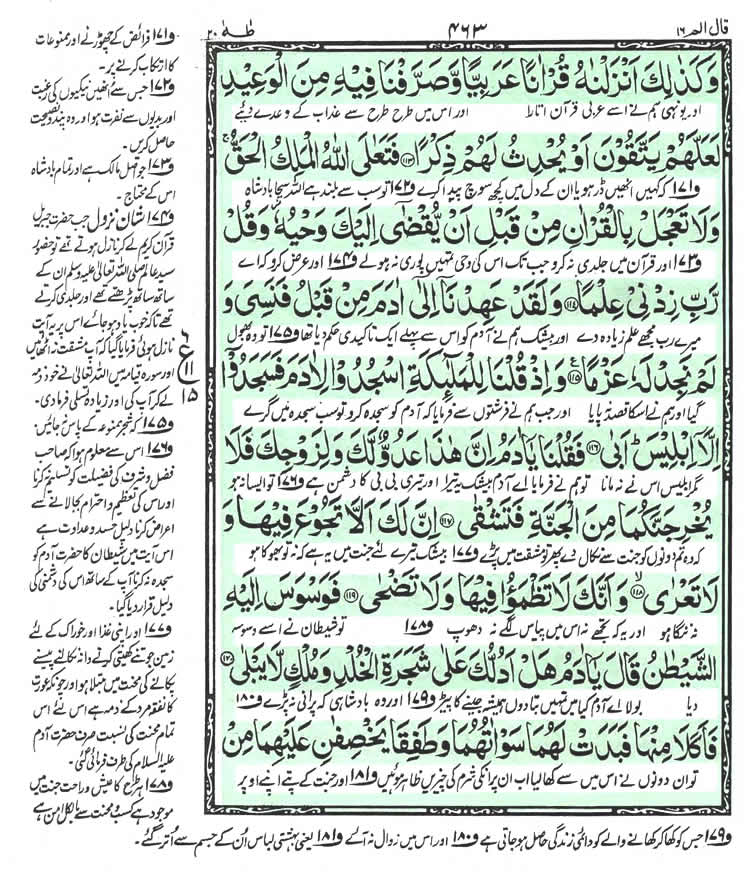 قال الم ١٦
٤٦٣
طٰهٰ ٢٠
وَكَذٰلِكَ اَنْزَلْنٰهُ قُرْاٰنًا عَرَبِيًّا وَّصَرَّفْنَا فِيْهِ مِنَ الْوَعِيْدِ
اور یونہی ہم نے اسے عربی قرآن اتارا اور اس میں طرح طرح سے عذاب کے وعدے دیئے
لَعَلَّهُمْ يَتَّقُوْنَ اَوْ يُحْدِثُ لَهُمْ ذِكْرًا ﴿١١٣﴾ فَتَعٰلَى اللّٰهُ الْمَلِكُ الْحَقُّ ۚ
و١٧١ کہ کہیں انھیں ڈر ہو یا ان کے دل میں کچھ سوچ پیدا کرے و١٧٢ تو سب سے بلند ہے اللہ سچا بادشاہ
وَلَا تَعْجَلْ بِالْقُرْاٰنِ مِنْ قَبْلِ اَنْ يُّقْضٰۤى اِلَيْكَ وَحْيُهٗ ۫ وَقُلْ
و١٧٣ اور قرآن میں جلدی نہ کرو جب تک اس کی وحی تمہیں پوری نہ ہولے و١٧٤ اور عرض کرو کہ اے
رَّبِّ زِدْنِيْ عِلْمًا ﴿١١٤﴾ وَلَقَدْ عَهِدْنَاۤ اِلٰۤى اٰدَمَ مِنْ قَبْلُ فَنَسِيَ وَ
میرے رب مجھے علم زیادہ دے اور بیشک ہم نے آدم کو اس سے پہلے ایک تاکیدی حکم دیا تھا و١٧٥ تو وہ بھول
لَمْ نَجِدْ لَهٗ عَزْمًا ﴿١١٥﴾ وَاِذْ قُلْنَا لِلْمَلٰٓئِكَةِ اسْجُدُوْا لِاٰدَمَ فَسَجَدُوْۤا
گیا اور ہم نے اسکا قصد نہ پایا اور جب ہم نے فرشتوں سے فرمایا کہ آدم کو سجدہ کرو تو سب سجدہ میں گرے
اِلَّاۤ اِبْلِيْسَ ؕ اَبٰى ﴿١١٦﴾ فَقُلْنَا يٰۤاٰدَمُ اِنَّ هٰذَا عَدُوٌّ لَّكَ وَلِزَوْجِكَ فَلَا
مگر ابلیس اس نے نہ مانا تو ہم نے فرمایا اے آدم بیشک یہ تیرا اور تیری بی بی کا دشمن ہے و١٧٦ تو ایسا نہ ہو
يُخْرِجَنَّكُمَا مِنَ الْجَنَّةِ فَتَشْقٰى ﴿١١٧﴾ اِنَّ لَكَ اَلَّا تَجُوْعَ فِيْهَا وَ
کہ وہ تم دونوں کو جنت سے نکال دے پھر تو مشقت میں پڑے و١٧٧ بیشک تیرے لئے جنت میں یہ ہے کہ نہ تو بھوکا ہو
لَا تَعْرٰى ﴿١١٨﴾ وَاَنَّكَ لَا تَظْمَؤُا فِيْهَا وَلَا تَضْحٰى ﴿١١٩﴾ فَوَسْوَسَ اِلَيْهِ
نہ ننگا ہو اور یہ کہ تجھے نہ اس میں پیاس لگے نہ دھوپ و١٧٨ تو شیطان نے اسے وسوسہ
الشَّيْطٰنُ قَالَ يٰۤاٰدَمُ هَلْ اَدُلُّكَ عَلٰى شَجَرَةِ الْخُلْدِ وَمُلْكٍ لَّا يَبْلٰى ﴿١٢٠﴾
دیا بولا اے آدم کیا میں تمہیں بتا دوں ہمیشہ جینے کا پیڑ و١٧٩ اور وہ بادشاہی کہ پرانی نہ پڑے و١٨٠
فَاَكَلَا مِنْهَا فَبَدَتْ لَهُمَا سَوْاٰتُهُمَا وَطَفِقَا يَخْصِفٰنِ عَلَيْهِمَا مِنْ
تو ان دونوں نے اس میں سے کھالیا اب ان پر انکی شرم کی چیزیں ظاہر ہوئیں و١٨١ اور جنت کے پتے اپنے اوپر
و١٧١ فرائض کے چھوڑنے اور ممنوعات
کا ارتکاب کرنے پر۔
و١٧٢ جس سے انھیں نیکیوں کی رغبت
اور بدیوں سے نفرت ہو اور وہ پند و نصیحت
حاصل کریں۔
و١٧٣ جو اصل مالک ہے اور تمام بادشاہ
اس کے محتاج۔
و١٧٤ شان نزول جب حضرت جبریل
قرآن کریم لے کر نازل ہوتے تھے تو حضور
سید عالم صلی اللہ تعالیٰ علیہ وسلم ان کے
ساتھ ساتھ پڑھتے تھے اور جلدی کرتے
تھے تاکہ خوب یاد ہوجائے اس پر یہ آیت
نازل ہوئی فرمایا گیا کہ آپ مشقت نہ اٹھائیں
اور سورہ قیامہ میں اللہ تعالیٰ نے خود ذمہ
لے کر آپ کی اور زیادہ تسلی فرمادی۔
و١٧٥ کہ شجر ممنوعہ کے پاس نہ جائیں۔
و١٧٦ اس سے معلوم ہوا کہ صاحب
فضل و شرف کی فضیلت کو تسلیم نہ کرنا
اور اس کی تعظیم و احترام بجا لانے سے
اعراض کرنا دلیل حسد و عداوت ہے
اس آیت میں شیطان کا حضرت آدم کو
سجدہ نہ کرنا آپ کے ساتھ اس کی دشمنی کی
دلیل قرار دیا گیا۔
و١٧٧ اور اپنی غذا اور خوراک کے لئے
زمین جوتنے کھیتی کرنے دانہ نکالنے پیسنے
پکانے کی محنت میں مبتلا ہو اور چونکہ عورت
کا نفقہ مرد کے ذمہ ہے اس لئے اس
تمام محنت کی نسبت صرف حضرت آدم
علیہ السلام کی طرف فرمائی گئی۔
و١٧٨ ہر طرح کا عیش و راحت جنت میں
موجود ہے کسب و محنت سے بالکل امن ہے
ع
١١
١٥
و١٧٩ جس کو کھا کر کھانے والے کو دائمی زندگی حاصل ہوجاتی ہے و١٨٠ اور اس میں زوال نہ آئے و١٨١ یعنی بہشتی لباس اُن کے جسم سے اُتر گئے۔